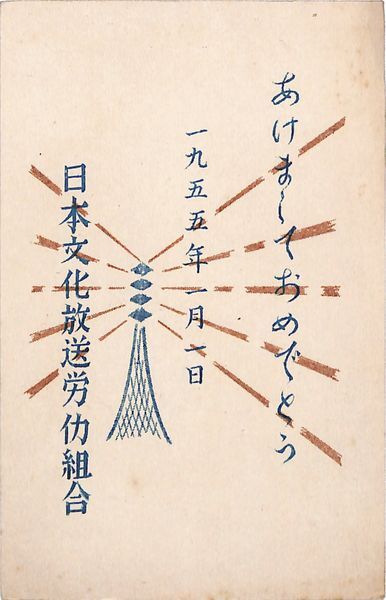 あけましておめでとう
一九五五年一月一日
日本文化放送労仂組合